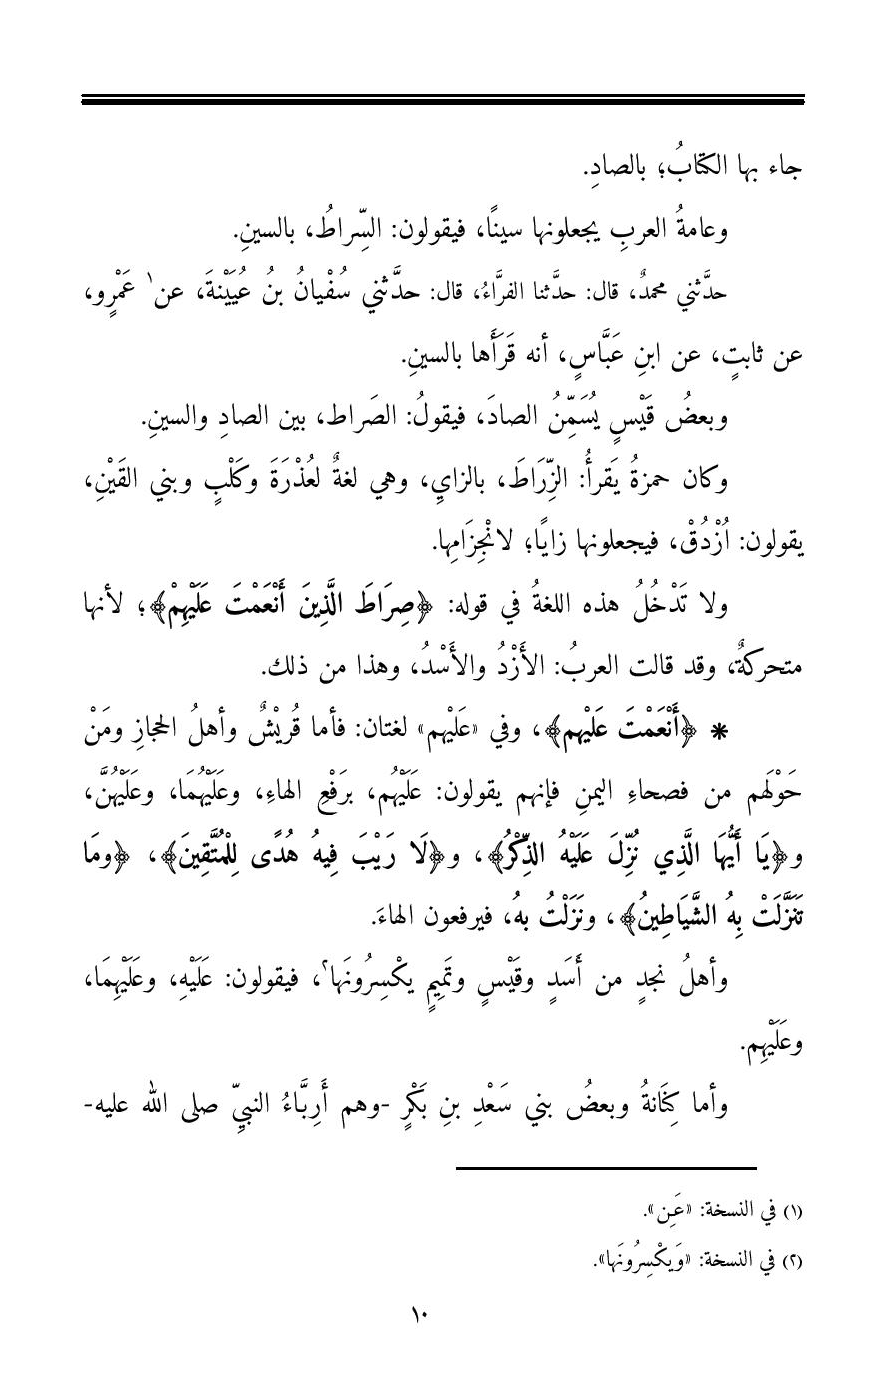 جاء بها الكتابُ؛ بالصادِ.
وعامةُ العربِ يجعلونها سينًا، فيقولون: السِّراطُ، بالسينِ.
حدَّثني محمدٌ، قال: حدَّثنا الفرَّاءُ، قال: حدَّثني سُفْيانُ بنُ عُيَيْنةَ، عن١ عَمْرٍو،
عن ثابتٍ، عن ابنِ عَبَّاسٍ، أنه قَرَأَها بالسينِ.
وبعضُ قَيْسٍ يُسَمِّنُ الصادَ، فيقولُ: الصَراط، بين الصادِ والسينِ.
وكان حمزةُ يَقرأُ: الزِّرَاطَ، بالزايِ، وهي لغةٌ لعُذْرَةَ وكَلْبٍ وبني القَيْنِ،
يقولون: اُزْدُقْ، فيجعلونها زايًا؛ لانْجِزَامِها.
ولا تَدْخُلُ هذه اللغةُ في قوله: ﴿صِرَاطَ الَّذِينَ أَنْعَمْتَ عَلَيْهِمْ﴾؛ لأنها
متحركةٌ، وقد قالت العربُ: الأَزْدُ والأَسْدُ، وهذا من ذلك.
* ﴿أَنْعَمْتَ عَلَيْهم﴾، وفي «عَلَيْهم» لغتان: فأما قُريْشٌ وأهلُ الحجازِ ومَنْ
حَوْلَهم من فصحاءِ اليمنِ فإنهم يقولون: عَلَيْهُم، برَفْعِ الهاءِ، وعَلَيْهُمَا، وعَلَيْهُنَّ،
و﴿يَا أَيُّهَا الَّذِي نُزِّلَ عَلَيْهُ الذِّكْرُ﴾، و﴿لَا رَيْبَ فِيهُ هُدًى لِلْمُتَّقِينَ﴾، ﴿ومَا
تَنَزَّلَتْ بِهُ الشَّيَاطِينُ﴾، ونَزَلْتُ بهُ، فيرفعون الهاءَ.
وأهلُ نجدٍ من أَسَدٍ وقَيْسٍ وتَمِيمٍ يكْسِرُونَها٢، فيقولون: عَلَيْهِ، وعَلَيْهِمَا،
وعَلَيْهِم.
وأما كِنَانةُ وبعضُ بني سَعْدِ بنِ بَكْرٍ -وهم أَرِبَّاءُ النبيِّ صلى الله عليه-
(١) في النسخة: «عَنِ».
(٢) في النسخة: «وَيكْسِرُونَها».
١٠